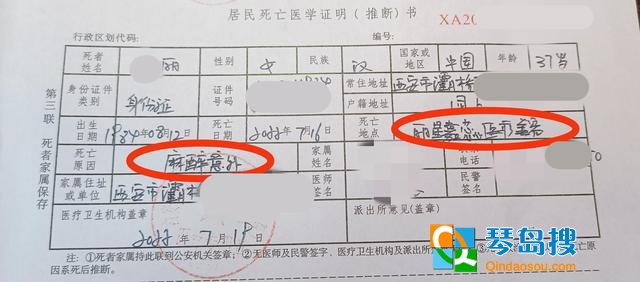 居民死亡医学证明(推断)书
XA20
行政区划代码: 编号:
死者姓名 丽 性别 女 民族 汉 国家或地区 中国 年龄 37岁
身份证件类别 身份证 证件号码 常住地址 西安市灞桥
户籍地址 同上
出生日期 1984年08月12日 死亡日期 2022年7月16日 死亡地点
死亡原因 麻醉意外 家属姓名 电话
家属住址或单位 西安市灞桥 医师签名 民警签名
医疗卫生机构盖章 派出所意见(盖章)
2022年7月19日
第三联 死者家属保存
注:①死者家属持此联到公安机关签章;②无医师及民警签字、医疗卫生机构及派出所
因系死后推断。
琴岛搜
Qindaosou.com